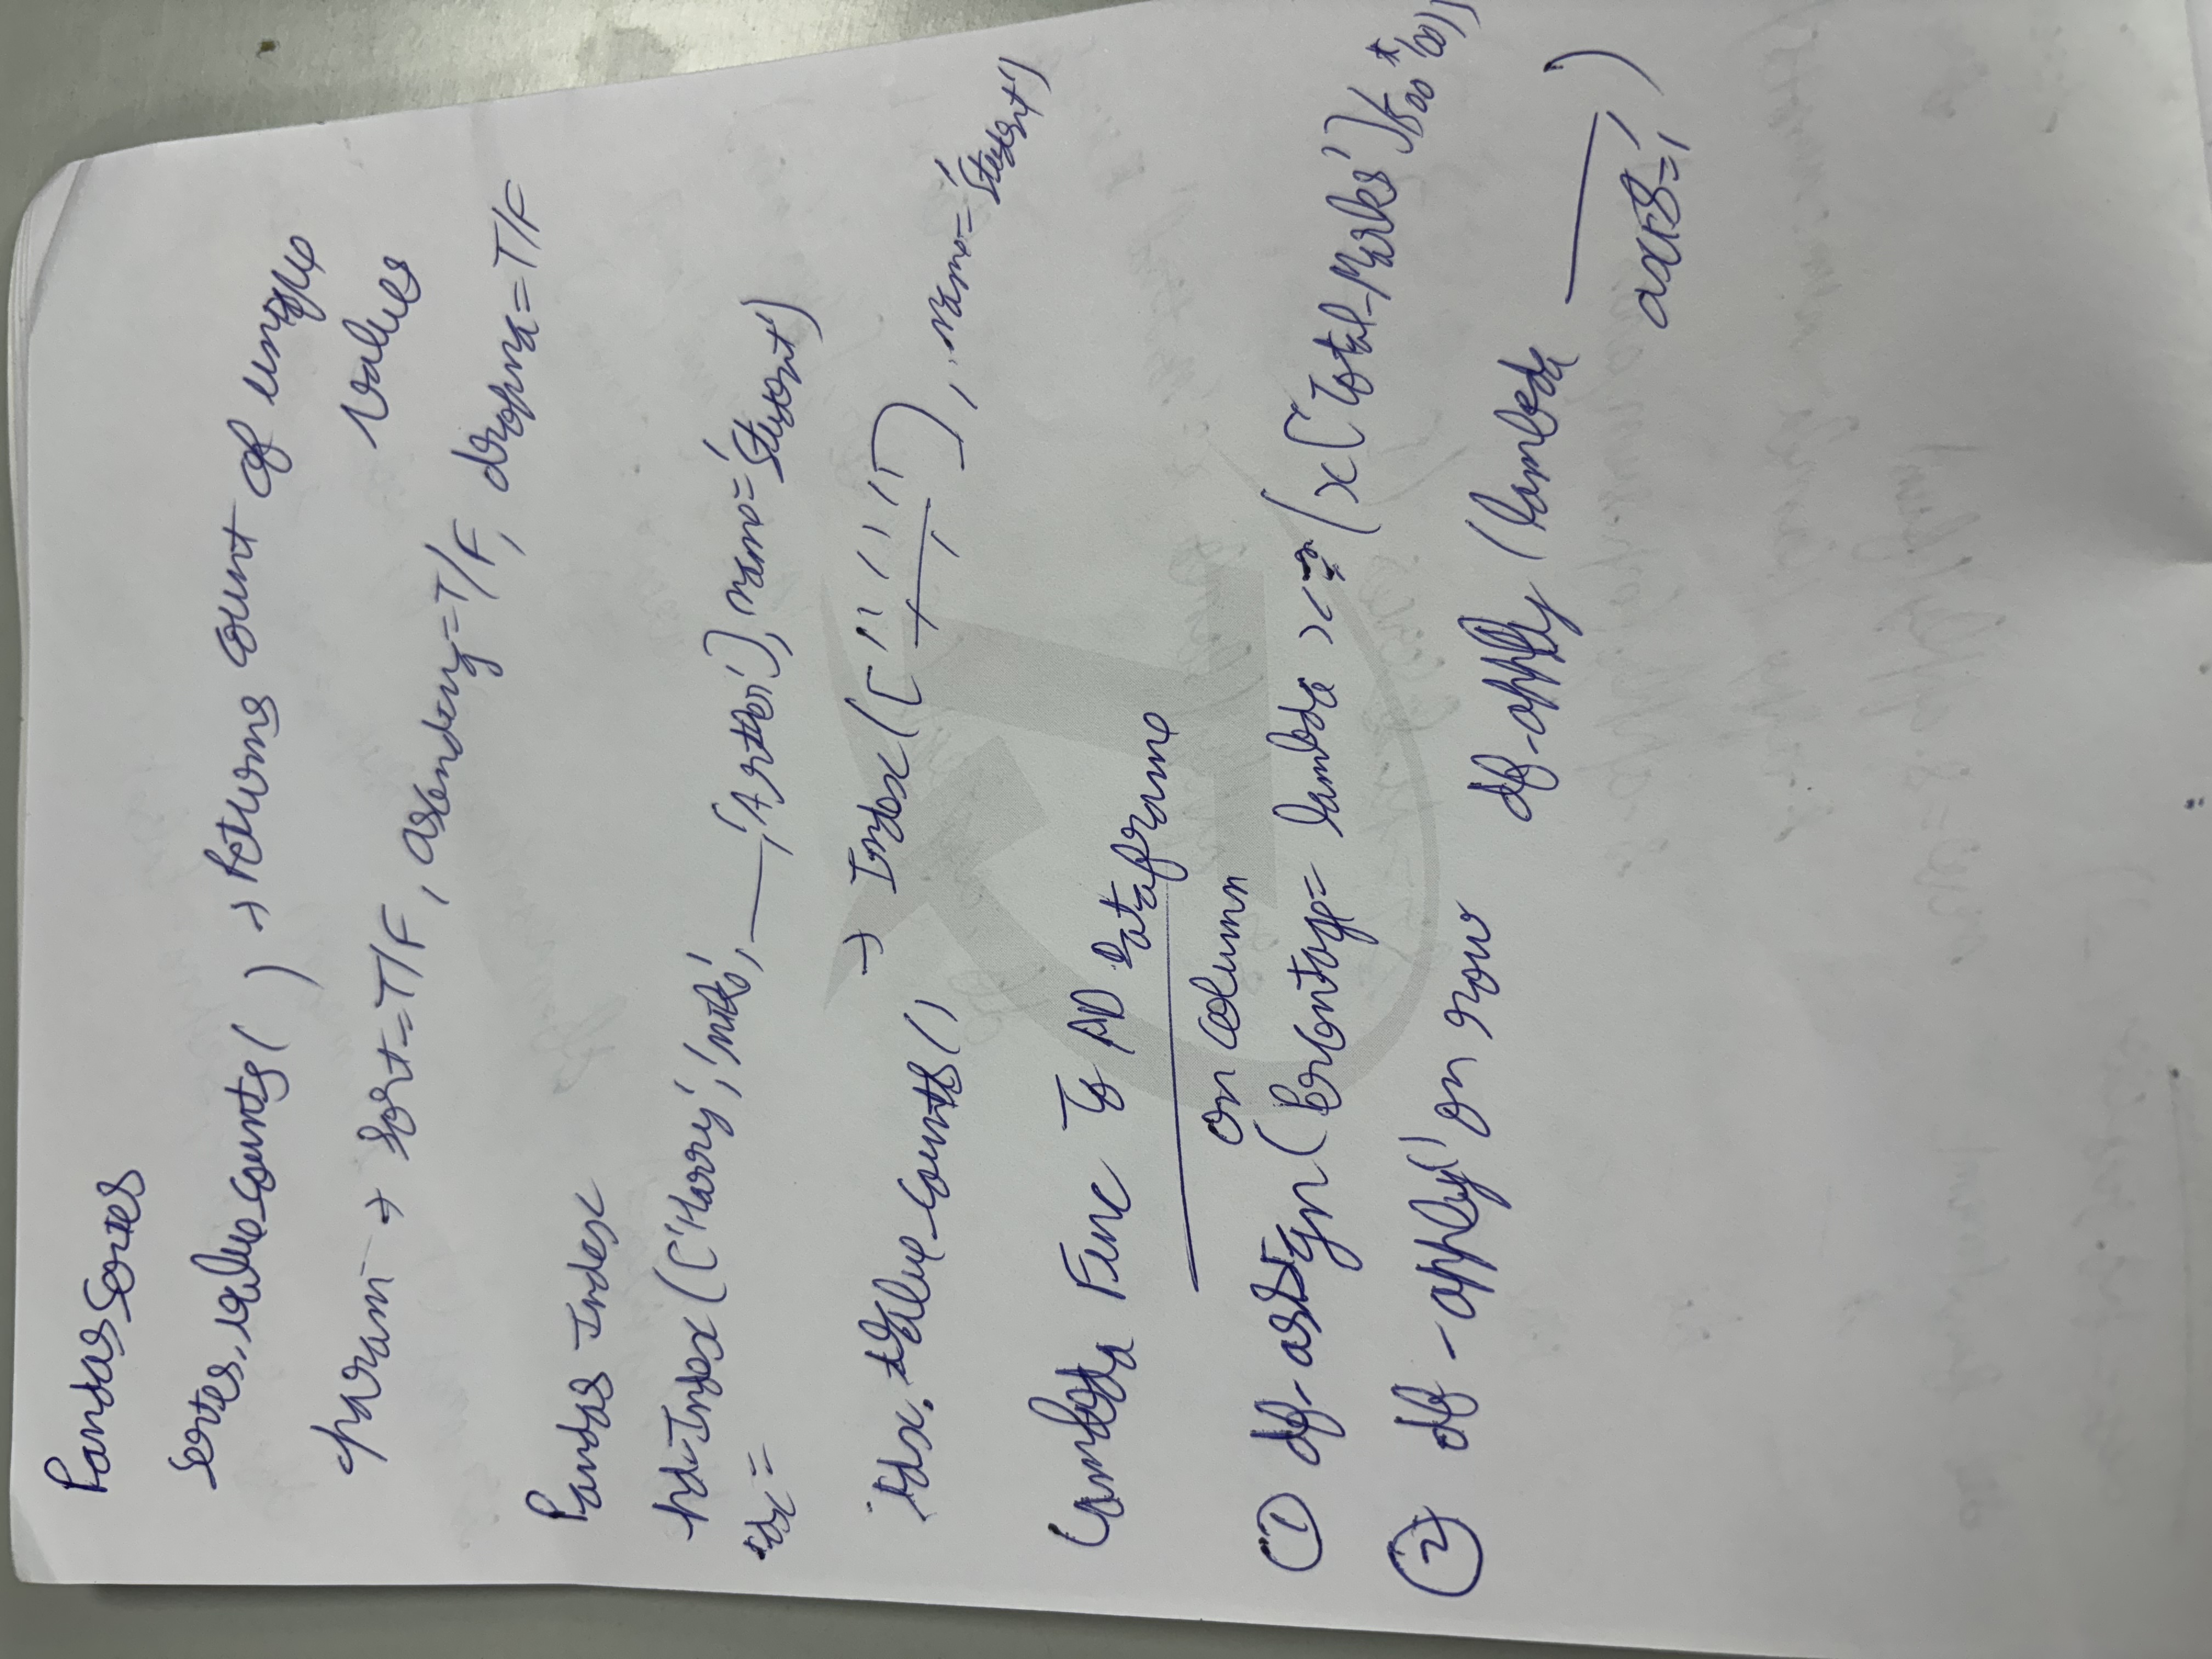 Pandas Series
Series.value_counts( ) → Returns count of unique
values
param → sort=T/F, ascending=T/F, dropna=T/F
Pandas Index
pd.Index(['Harry','Mike',—,'Arther'], name='Student')
idx =
→ Index(['', '', ''], name='Student')
idx.value_counts()
Lambda Func To PD Dataframe
on column
① df.assign(Percentage= lambda x: (x['Total_Marks']/500*100))
② df.apply() on row
df.apply(lambda ___)
axis=1